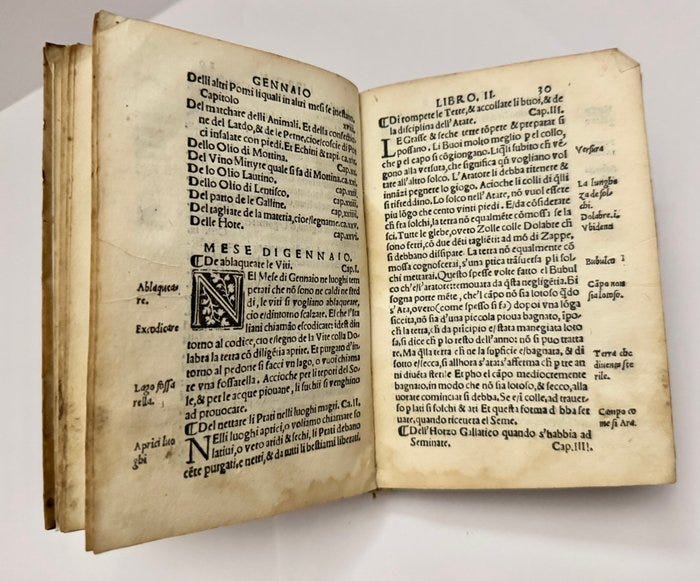 GENNAIO
Delli altri Pomi liquali in altri mesi se inestano,
Capitolo xvii.
Del matchare delli Animali. Et della confedio
ne del Lardo, & de le Perne, cioe coscie di Por
ci insalate con piedi, et Echini & rapi. ca.xix.
Dello Olio di Mortina. cap.xx.
Del Vino Mirtyte quale si fa di Mortina. ca.xxi.
Dello Olio Lautino. cap.xxii.
Dello Olio di Lentisco. cap.xxiii.
Del patto de le Galline. cap.xxiiii.
Del tagliate de la materia, cioe legname. ca.xxv.
Delle Hote. cap.xxvi.
MESE DI GENNAIO.
De ablaqueate le Viti. Cap.I.
NEl Mese di Gennaio ne luoghi tem
perati che nõ sono ne caldi ne fred
di, le viti si vogliano ablaqueate,
cio e dintotno scalzate. El che l'Ita
liani chiamão escodicate: idest din
totno al codice, cio e legno de la Vite colla Do-
labra la tetra cõ diligẽtia aprite. Et purgato d'in
totno al pedone si facci vn lago, o vuoi chiama
te vna fossatella. Accioche per li tepoti del So-
le, & per le acque piouane, li sut bii si venghino
ad prouocate.
Del nettare li Prati nelli luoghi magri. Ca.II.
NElli luoghi aptici, o voliamo chiamate so
latiui, o veto aridi & sechi, li Prati debano
cẽte putgati, e netti, & da tutti li bestiami liberati,
Ablaqueta
re.
Excodicare
Lago fossa
rella.
Aprici luo
ghi
LIBRO. II. 30
Di rompete le Tette, & accollate li buoi, & de
la disciplina dell'Atate. Cap.III.
LE Grasse & seche tette tõpete & preparat si
possano. Li Buoi molo meglio p el collo,
che p el capo si cõgiongano. Liq̃li subito ch̃ vẽ-
gono alla versuta, che significa q̃n vogliano vol
tate all'altro solco. L'Aratore li debba ritenete &
innãzi pegnete lo giogo. Acioche li colli di q̃lli
si rifreddino. Lo solco nell'Atate, nõ vuol essere
piu lõgo che cento vinti piedi. E da cõsiderate
ch̃ fra solchi, la tetta nõ equalmẽte cõmossa se la
sci. Tutte le glebe, oveto Zolle colle Dolabte ch̃
sono ferti, cõ due dẽti tagliẽti ad mõ di Zappe,
si debbano dissipate. La tetta nõ equalmente cõ
mossa cognoscerai, s'vna ptica trãsuersa p li sol-
chi mettatai. Questo spesse volte fatto el Bubul
co ch'e l'atatote timouata da q̃sta negligẽtia. Bi
sogna potte mẽte, che'l cãpo nõ sia lotoso q̃do
s'Ata, oveto (come spesso si fa) dopoi vna lõga
siccita, nõ sia d'vna piccola pioua bagnato, ipo-
ch̃ la tetta, ch̃ da pricipio e stata manegiata loto
sa, si dice ch̃ p lo resto dell'anno: nõ si puo tratta
te. Ma q̃lla tetta ch̃ ne la supficie e bagnata, & di
sotto e secca, si allhora s'atara s'afferma ch̃ p tre an
ni diuẽta sterile. Et pho el cãpo mediocterment
bagnato, in modo che nõ sia lutoso, & secco, alla
uorate cominciat si debba. Se e ĩ colle, ad trauer-
so p lati si solchi & ati Et questa forma d bba set
vate, quando riceueta el Seme.
Dell'Hotzo Gallatico quando s'habbia ad
Seminate. Cap.IIII.
Versura
La lungheza
de solchi.
Dolabre.i.
V bidenti
Bubulco
Cãpo non
sia lotoso.
Terra che
diuenta ste
rile.
Campo co
me si Ara.